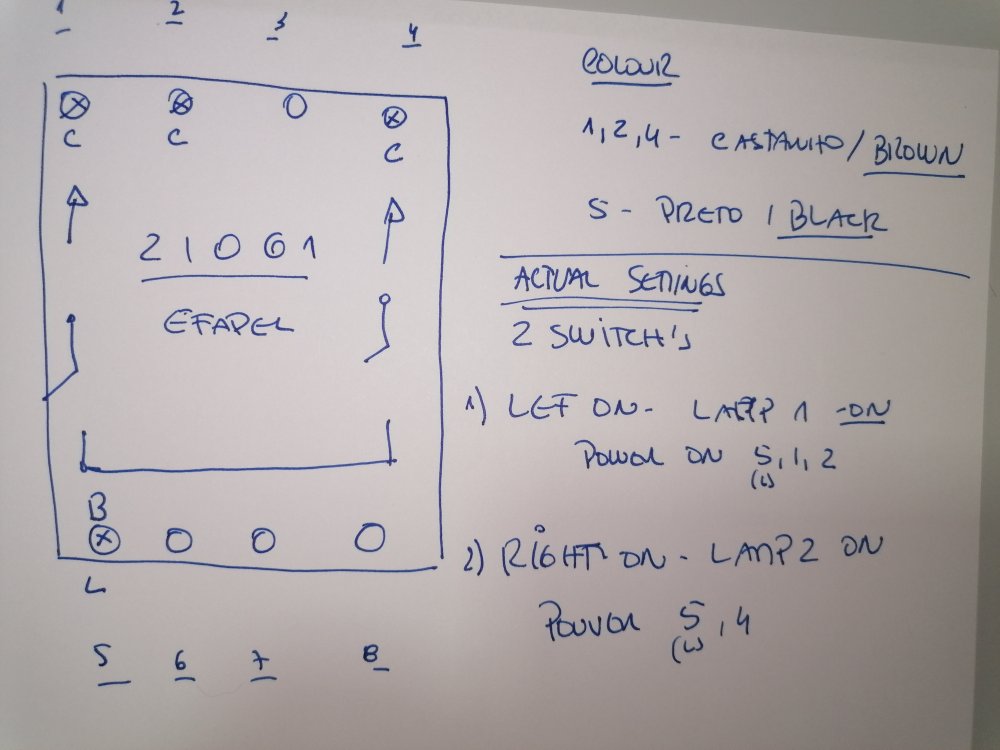 1 2 3 4
C C C
21061
EFAPEL
B
L
5 6 7 8
COLOUR
1,2,4 - CASTANHO / BROWN
5 - PRETO / BLACK
ACTUAL SETTINGS
2 SWITCH'S
1) LEF ON - LAMP 1 -ON
POWER ON 5, 1, 2
(L)
2) RIGHT ON - LAMP 2 ON
POWER 5, 4
(L)